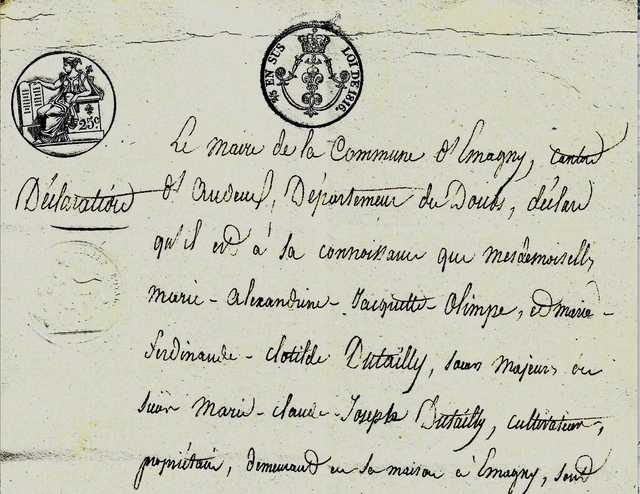 ⅘ EN SUS LOI DE 1816.
25c
Le Maire de la Commune d'Emagny, canton
Déclaration
d'Audeux, Département du Doubs, déclare
qu'il est à sa connoissance que mesdemoiselles
Marie-Alexandrine-Jacquette-Olimpe, et Marie-
Ferdinande-Clotilde Dutailly, sœurs majeures du
sieur Marie-Claude-Joseph Dutailly, cultivateur,
propriétaire, demeurant en sa maison à Emagny, sont